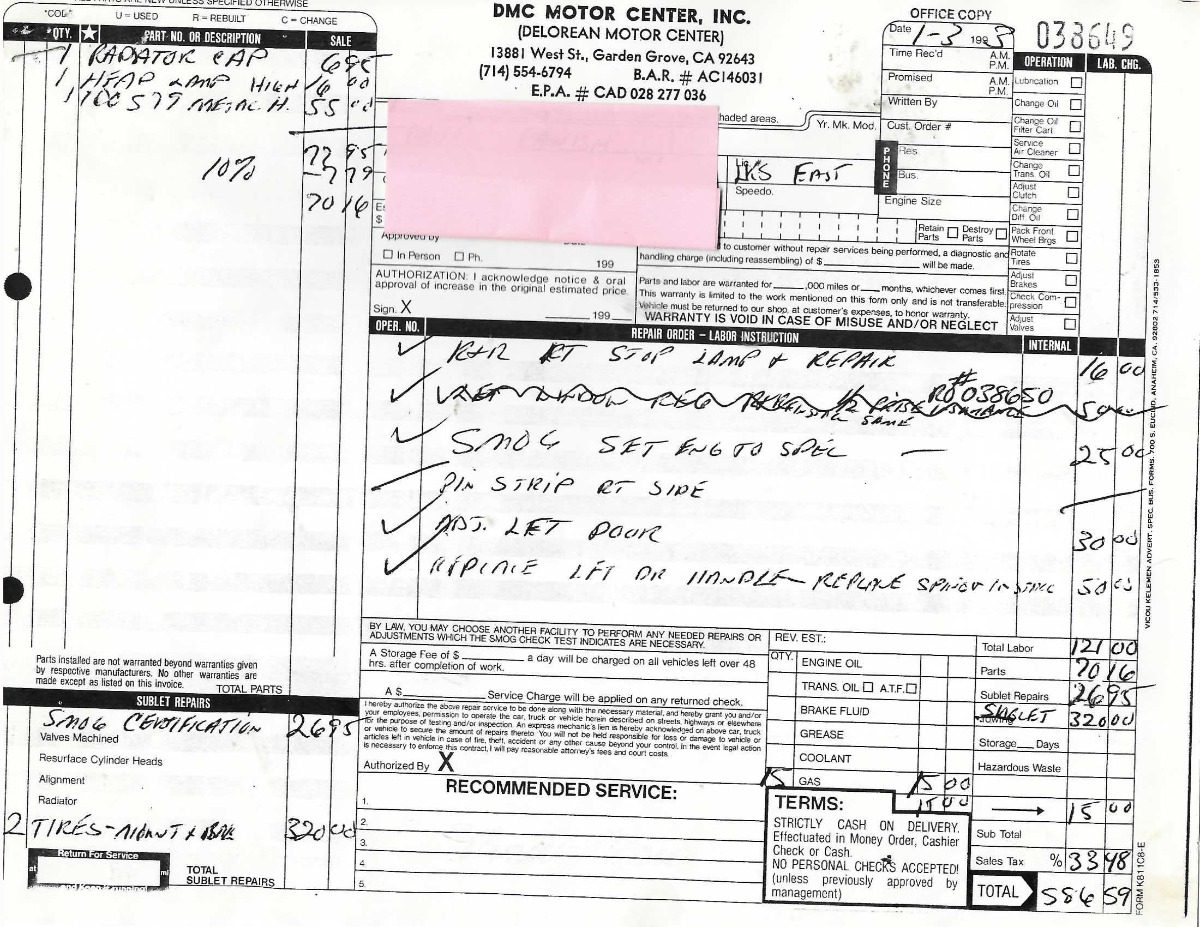 ALL PARTS ARE NEW UNLESS SPECIFIED OTHERWISE
*CODE U = USED R = REBUILT C = CHANGE
*QTY. ★ PART NO. OR DESCRIPTION SALE
1 RADIATOR CAP 6 95
1 HEAD LAMP HIGH 16 00
1 METAL H. 55 00
77 95
10% -7 79
70 16
Parts installed are not warranted beyond warranties given
by respective manufacturers. No other warranties are
made except as listed on this invoice.
TOTAL PARTS
SUBLET REPAIRS
SMOG CERTIFICATION 26 95
Valves Machined
Resurface Cylinder Heads
Alignment
Radiator
2 TIRES - MOUNT & BAL 320 00
Return For Service
at mi
TOTAL
SUBLET REPAIRS
DMC MOTOR CENTER, INC.
(DELOREAN MOTOR CENTER)
13881 West St., Garden Grove, CA 92643
(714) 554-6794 B.A.R. # AC146031
E.P.A. # CAD 028 277 036
haded areas.
Yr. Mk. Mod.
Lic. #
LKS EAST
Speedo.
$
Approved by Date
In Person Ph. 199
AUTHORIZATION: I acknowledge notice & oral
approval of increase in the original estimated price.
Sign. X 199
to customer without repair services being performed, a diagnostic and
handling charge (including reassembling) of $ will be made.
Parts and labor are warranted for ,000 miles or months, whichever comes first.
This warranty is limited to the work mentioned on this form only and is not transferable.
Vehicle must be returned to our shop, at customer's expenses, to honor warranty.
WARRANTY IS VOID IN CASE OF MISUSE AND/OR NEGLECT
OFFICE COPY
038649
Date 1-3 1993
Time Rec'd A.M. P.M.
Promised A.M. P.M.
Written By
Cust. Order #
PHONE
Res.
Bus.
Engine Size
Retain Parts Destroy Parts
OPERATION LAB. CHG.
Lubrication
Change Oil
Change Oil Filter Cart.
Service Air Cleaner
Change Trans. Oil
Adjust Clutch
Change Diff. Oil
Pack Front Wheel Brgs
Rotate Tires
Adjust Brakes
Check Compression
Adjust Valves
OPER. NO. REPAIR ORDER – LABOR INSTRUCTION INTERNAL
R+R RT STOP LAMP & REPAIR 16 00
WINDOW REG RO# 038650
SAME
SMOG SET ENG TO SPEC — 25 00
PIN STRIP RT SIDE
ADJ. LFT DOOR 30 00
REPLACE LFT DR HANDLE - REPLACE 50 00
BY LAW, YOU MAY CHOOSE ANOTHER FACILITY TO PERFORM ANY NEEDED REPAIRS OR
ADJUSTMENTS WHICH THE SMOG CHECK TEST INDICATES ARE NECESSARY.
A Storage Fee of $ a day will be charged on all vehicles left over 48
hrs. after completion of work.
A $ Service Charge will be applied on any returned check.
I hereby authorize the above repair service to be done along with the necessary material, and hereby grant you and/or
your employees, permission to operate the car, truck or vehicle herein described on streets, highways or elsewhere
for the purpose of testing and/or inspection. An express mechanic's lien is hereby acknowledged on above car, truck
or vehicle to secure the amount of repairs thereto. You will not be held responsible for loss or damage to vehicle or
articles left in vehicle in case of fire, theft, accident or any other cause beyond your control. In the event legal action
is necessary to enforce this contract, I will pay reasonable attorney's fees and court costs.
Authorized By X
RECOMMENDED SERVICE:
1.
2.
3.
4.
5.
REV. EST.:
QTY.
ENGINE OIL
TRANS. OIL A.T.F.
BRAKE FLUID
GREASE
COOLANT
15 GAS 15 00
15 00
TERMS:
STRICTLY CASH ON DELIVERY.
Effectuated in Money Order, Cashier
Check or Cash.
NO PERSONAL CHECKS ACCEPTED!
(unless previously approved by
management)
Total Labor 121 00
Parts 70 16
Sublet Repairs 26 95
SUBLET 320 00
Storage Days
Hazardous Waste
15 00
Sub Total
Sales Tax % 33 48
TOTAL 586 59
VICOU KELEMEN ADVERT. SPEC. BUS. FORMS. 700 S. EUCLID, ANAHEIM, CA. 92802 714/533-1853
FORM K811C8-E